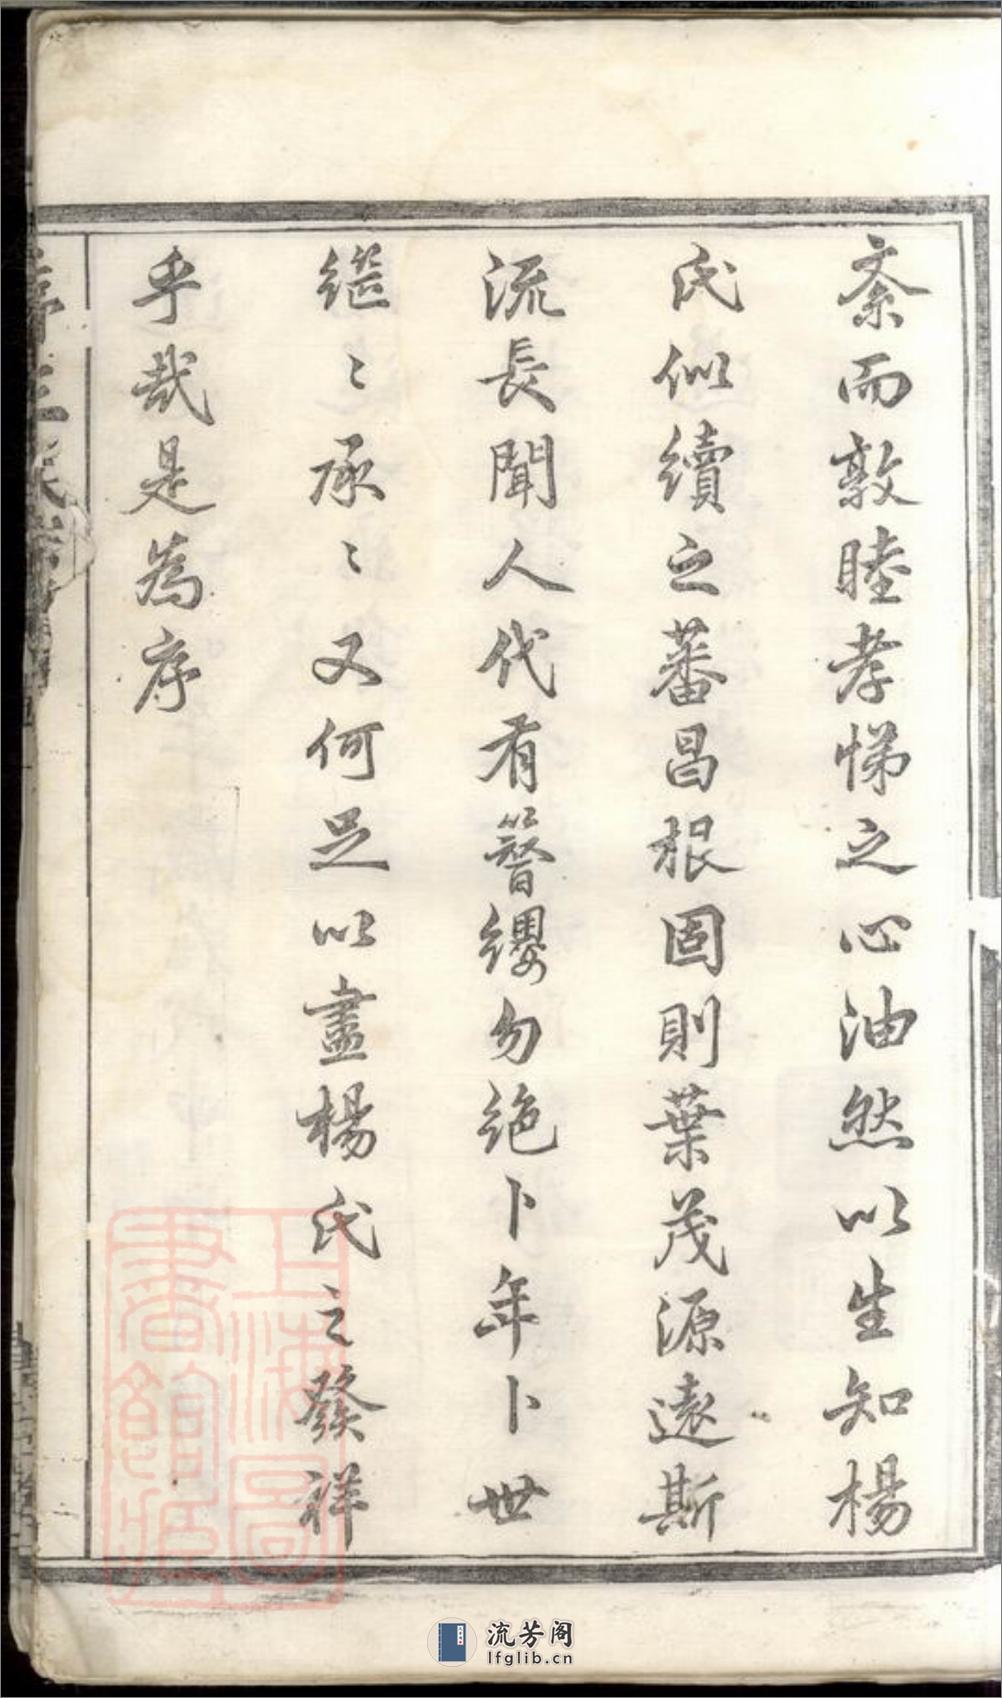 紊而敦睦孝悌之心油然以生知楊
氏似續之蕃昌根固則葉茂源遠斯
流長聞人代有簪纓勿絕卜年卜世
繼〻承〻又何足以盡楊氏之發祥
乎哉是為序
上海圖
書館藏
流芳阁
lfglib.cn